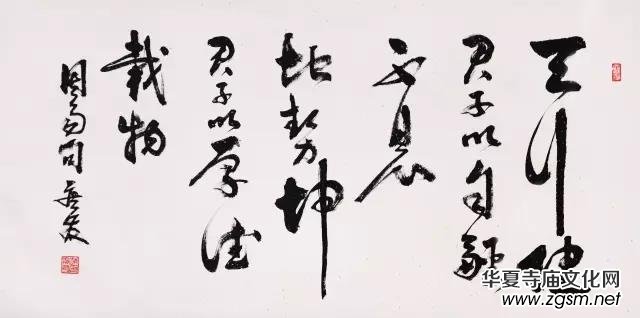 天行健
君子以自強
不息
地勢坤
君子以厚德
載物
周易句
华夏寺庙文化网
www.zgsm.net